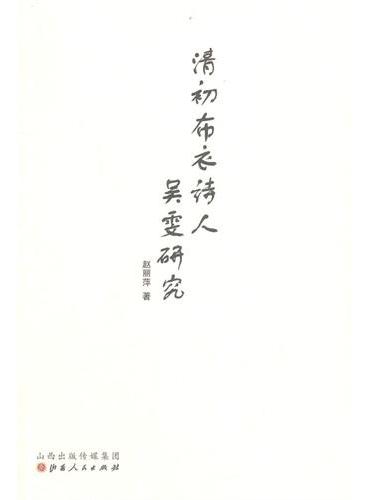 清初布衣诗人
吴雯研究
赵丽萍 著
山西出版传媒集团
山西人民出版社